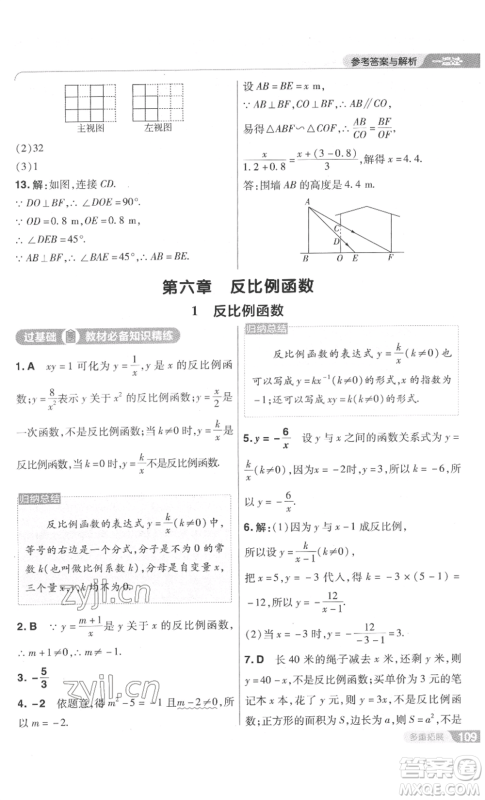 参考答案与解析 一遍过
主视图 左视图
(2)32
(3)1
13.解:如图,连接 CD.
∵ DO⊥BF,OE=DO,∴ ∠DOE=90°.
∵ OD=0.8 m,OE=0.8 m,
∴ ∠DEB=45°.
∵ AB⊥BF,∴ ∠BAE=45°,∴ AB=BE.
设 AB=BE=x m.
∵ AB⊥BF,CO⊥BF,∴ AB//CO,
易得△ABF∽△COF,∴ AB/CO=BF/OF,
∴ x/(1.2+0.8)=(x+(3-0.8))/3,解得 x=4.4.
答:围墙 AB 的高度是 4.4 m.
A
C
D
B O E F
第六章 反比例函数
1 反比例函数
过基础 教材必备知识精练
1.A xy=1 可化为 y=1/x,y 是 x 的反比例函
数;y=8/x² 表示 y 与 x² 成反比例函数;y=x/2是
一次函数,不是反比例函数;y=k/x,当 k=0
时,不是反比例函数.
归纳总结
反比例函数的表达式 y=k/x(k≠0)中,
等号的右边是一个分式,分子是不为零的常
数 k(也叫做比例系数 k),分母是自变量 x,
三个量 x,y,k 均不为 0.
2.B ∵ y=(m+1)/x
3.-5/3
4.-2 依题意,得 m²-5=-1 且 m-2≠0,所
以 m=-2.
归纳总结
反比例函数的表达式 y=k/x(k≠0)也
可以写成 y=kx⁻¹(k≠0)的形式,x 的指数为
-1;还可以写成 xy=k(k≠0)的形式.
5.y=-6/x 设 y 与 x 之间的函数关系式为 y=
k/x(k≠0),因为 x=-2时,y=3,所以 k=-6,
所以 y=-6/x.
6.解:(1)因为 y 与 x-1 成反比例,
所以设 y=k/(x-1)(k≠0),
将 x=-5,y=2
-12,所以 y=-12/(x-1).
(2)当 x=5 时,y=-12/(5-1)=-3.
7.D 长 40 米的绳子减去 x 米,还剩 y 米,则
y=40-x,不是反比例函数;买单价为 3 元的笔
记本 x 本,花了 y 元,则 y=3x,不是反比例函
数;正方形的面积为 S,边长为 a,则 S=a²,不是
多重拓展 109
zyjl.cn
zyjl.cn
答案圈
MXQE.COM